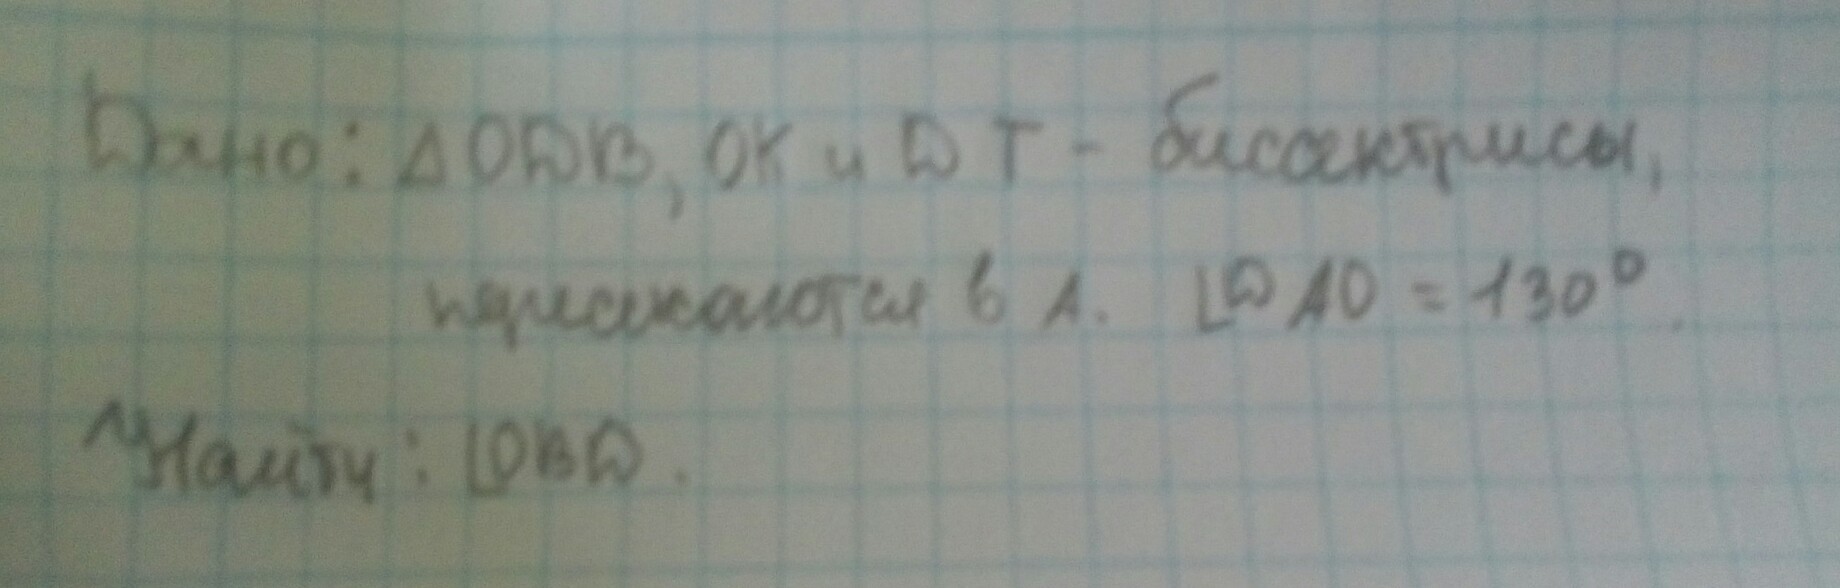 Дано: ΔODB, OK и DT - биссектрисы,
пересекаются в A. ∠DAO = 130°.
Найти: ∠OBD.